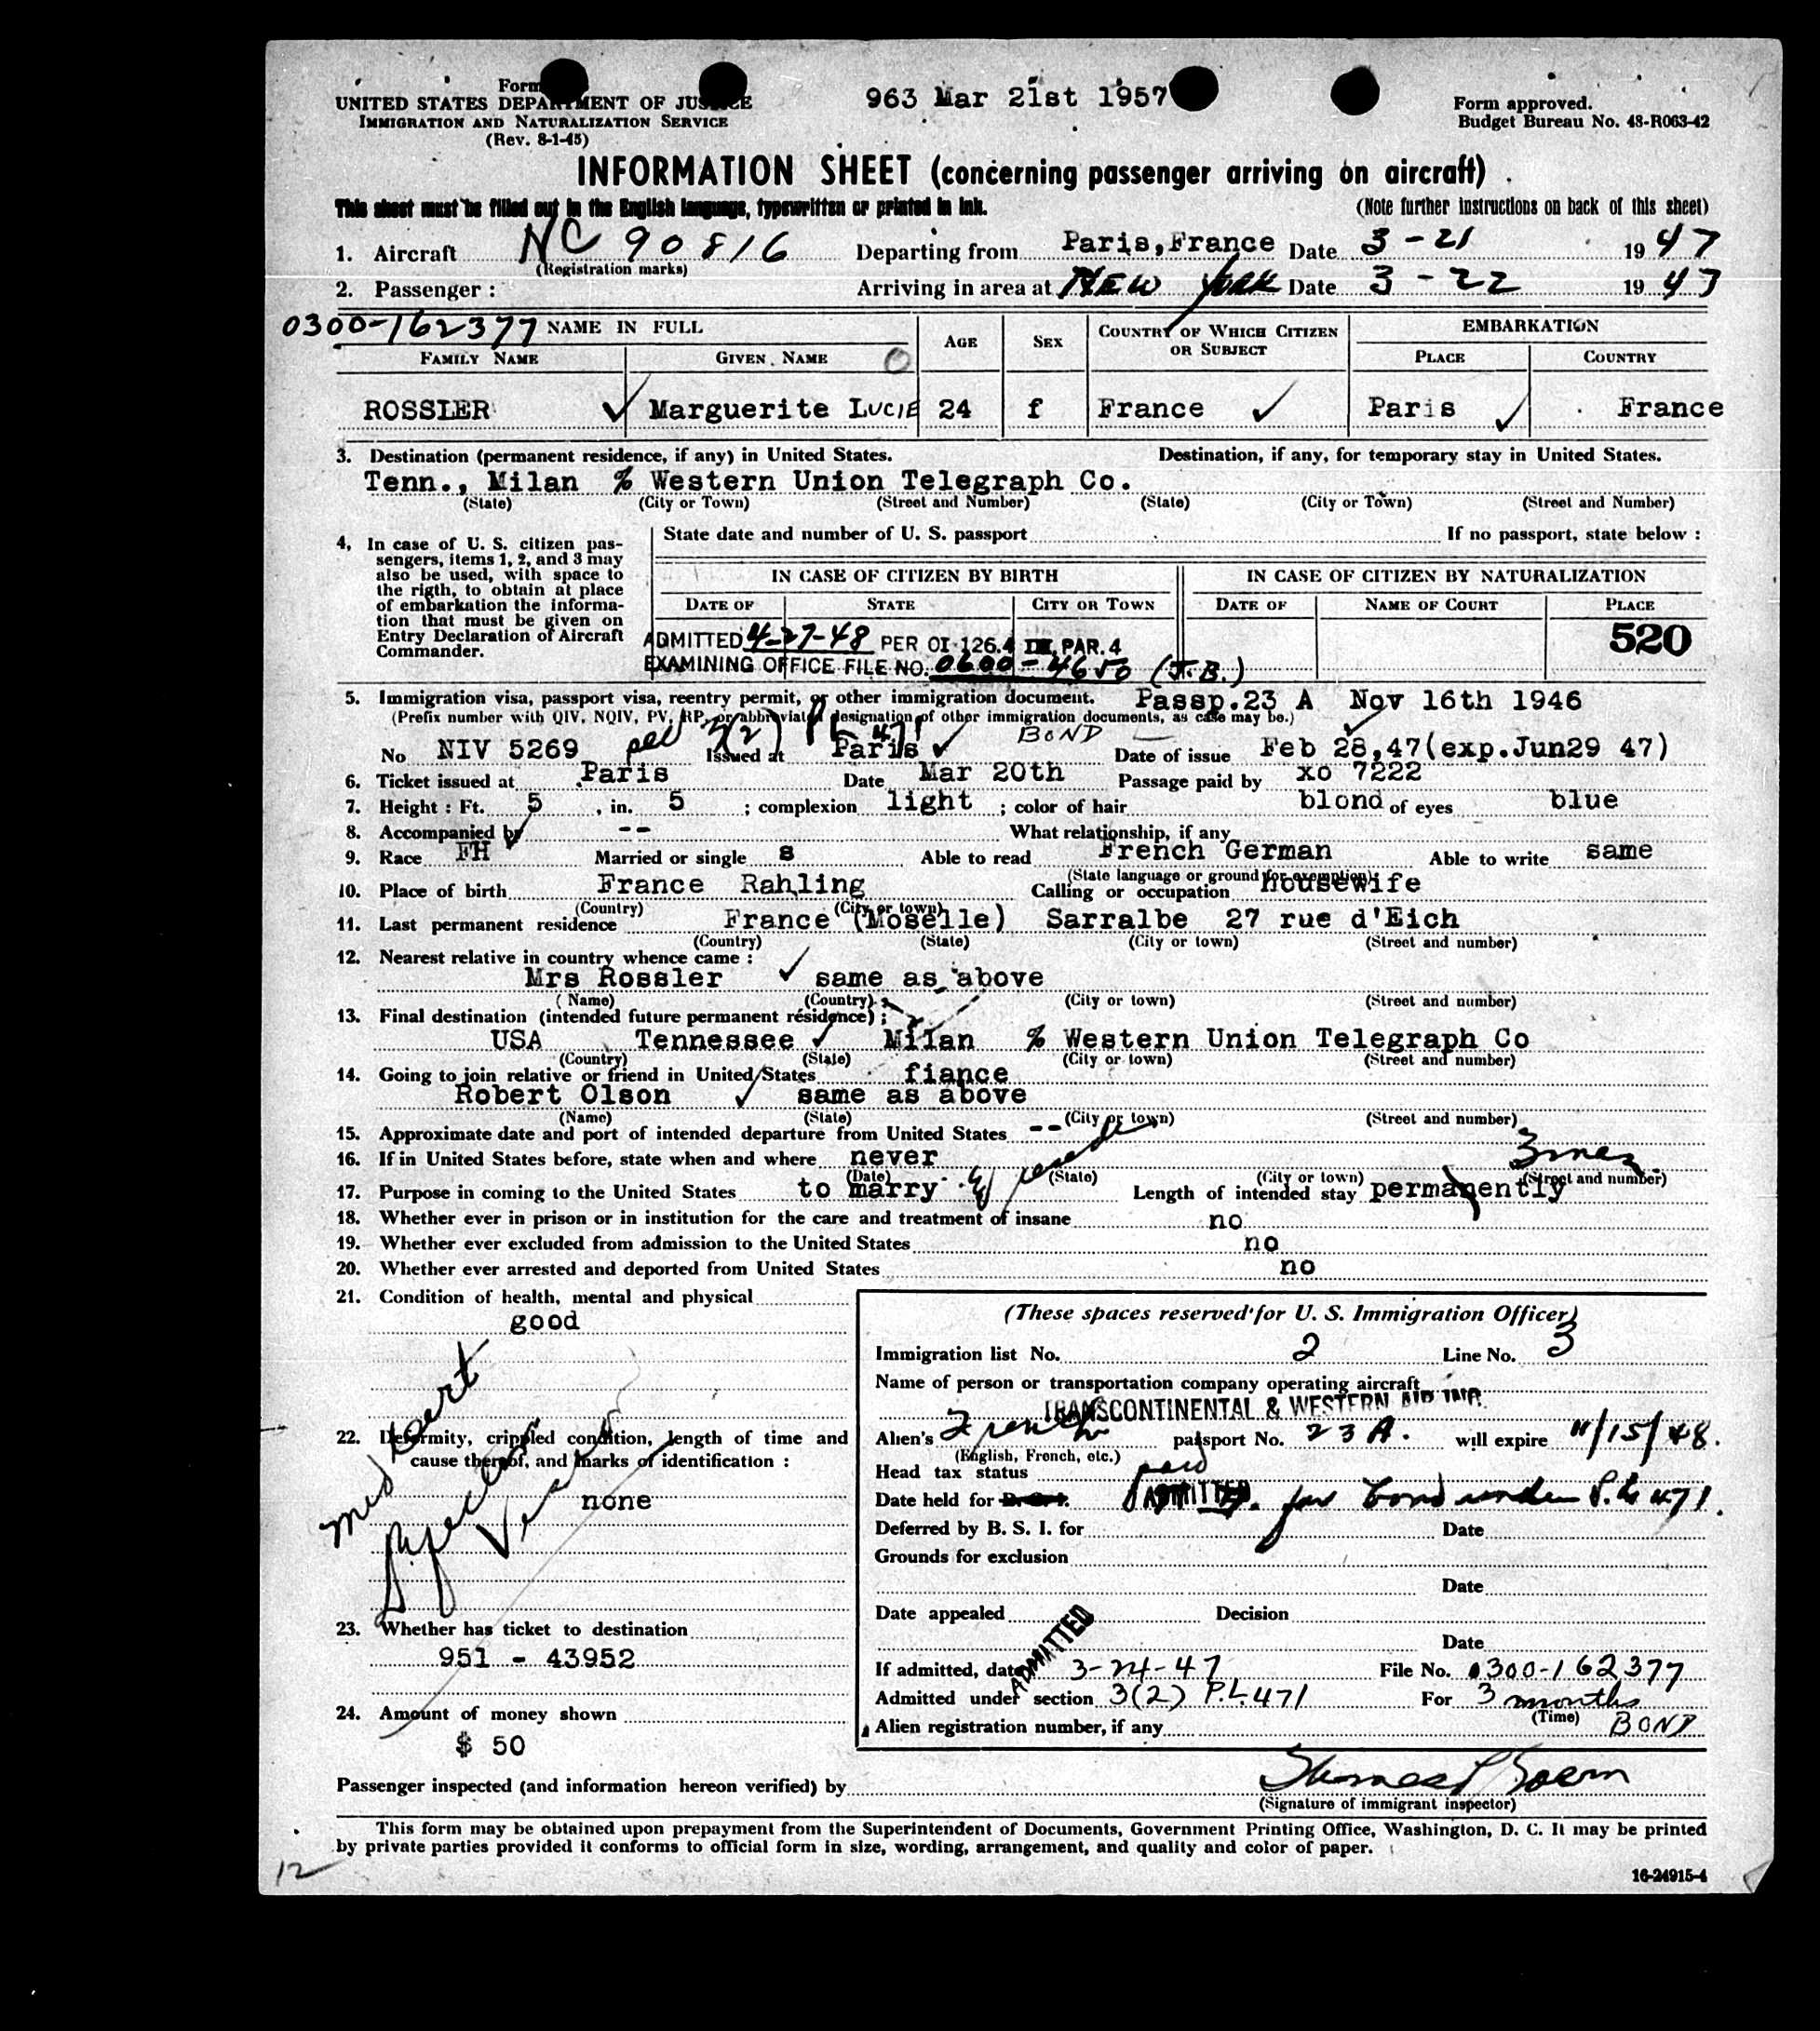 Form
963 Mar 21st 1957
UNITED STATES DEPARTMENT OF JUSTICE
IMMIGRATION AND NATURALIZATION SERVICE
(Rev. 8-1-45)
Form approved.
Budget Bureau No. 43-R063-42
INFORMATION SHEET (concerning passenger arriving on aircraft)
This sheet must be filled out in the English language, typewritten or printed in ink. (Note further instructions on back of this sheet)
1. Aircraft NC 90816 Departing from Paris, France Date 3-21 1947
(Registration marks)
2. Passenger : Arriving in area at NEW York Date 3-22 1947
0300-162377 NAME IN FULL AGE SEX COUNTRY OF WHICH CITIZEN OR SUBJECT EMBARKATION
FAMILY NAME GIVEN NAME PLACE COUNTRY
ROSSLER Marguerite LUCIE 24 f France Paris France
3. Destination (permanent residence, if any) in United States. Destination, if any, for temporary stay in United States.
Tenn., Milan % Western Union Telegraph Co.
(State) (City or Town) (Street and Number) (State) (City or Town) (Street and Number)
4, In case of U. S. citizen pas-
sengers, items 1, 2, and 3 may
also be used, with space to
the rigth, to obtain at place
of embarkation the informa-
tion that must be given on
Entry Declaration of Aircraft
Commander.
State date and number of U. S. passport If no passport, state below :
IN CASE OF CITIZEN BY BIRTH IN CASE OF CITIZEN BY NATURALIZATION
DATE OF STATE CITY OR TOWN DATE OF NAME OF COURT PLACE
520
ADMITTED 4-27-48 PER OI 126.4 III, PAR. 4
EXAMINING OFFICE FILE NO. 0600-4650 (J.B.)
5. Immigration visa, passport visa, reentry permit, or other immigration document. Passp.23 A Nov 16th 1946
(Prefix number with QIV, NQIV, PV, RP, or abbreviated designation of other immigration documents, as case may be.)
3(2) PL 471 BOND
No NIV 5269 Issued at Paris Date of issue Feb 28,47(exp.Jun29 47)
6. Ticket issued at Paris Date Mar 20th Passage paid by xo 7222
7. Height : Ft. 5 , in. 5 ; complexion light ; color of hair blond of eyes blue
8. Accompanied by -- What relationship, if any
9. Race FH Married or single s Able to read French German Able to write same
(State language or ground for exemption)
10. Place of birth France Rahling Calling or occupation housewife
(Country) (City or town)
11. Last permanent residence France (Moselle) Sarralbe 27 rue d'Eich
(Country) (State) (City or town) (Street and number)
12. Nearest relative in country whence came :
Mrs Rossler same as above
(Name) (Country) (City or town) (Street and number)
13. Final destination (intended future permanent résidence) :
USA Tennessee Milan % Western Union Telegraph Co
(Country) (State) (City or town) (Street and number)
14. Going to join relative or friend in United States fiance
Robert Olson same as above
(Name) (State) (City or town) (Street and number)
15. Approximate date and port of intended departure from United States --
16. If in United States before, state when and where never
3 mos.
(Date) (State) (City or town) (Street and number)
17. Purpose in coming to the United States to marry Length of intended stay permanently
18. Whether ever in prison or in institution for the care and treatment of insane no
19. Whether ever excluded from admission to the United States no
20. Whether ever arrested and deported from United States no
21. Condition of health, mental and physical
good
med cert
22. Deformity, crippled condition, length of time and
cause thereof, and marks of identification :
none
23. Whether has ticket to destination
951 - 43952
24. Amount of money shown
$ 50
(These spaces reserved for U. S. Immigration Officer)
Immigration list No. 2 Line No. 3
Name of person or transportation company operating aircraft
TRANSCONTINENTAL & WESTERN AIR INC.
Alien's French passport No. 23 A. will expire 11/15/48.
(English, French, etc.)
Head tax status paid
Date held for B. S. I. ADMITTED for bond under P.L. 471.
Deferred by B. S. I. for Date
Grounds for exclusion
Date
Date appealed Decision
Date
ADMITTED
If admitted, date 3-24-47 File No. 0300-162377
Admitted under section 3(2) P.L.471 For 3 months
(Time) BOND
Alien registration number, if any
Passenger inspected (and information hereon verified) by
(Signature of immigrant inspector)
This form may be obtained upon prepayment from the Superintendent of Documents, Government Printing Office, Washington, D. C. It may be printed
by private parties provided it conforms to official form in size, wording, arrangement, and quality and color of paper.
12
16-24915-4